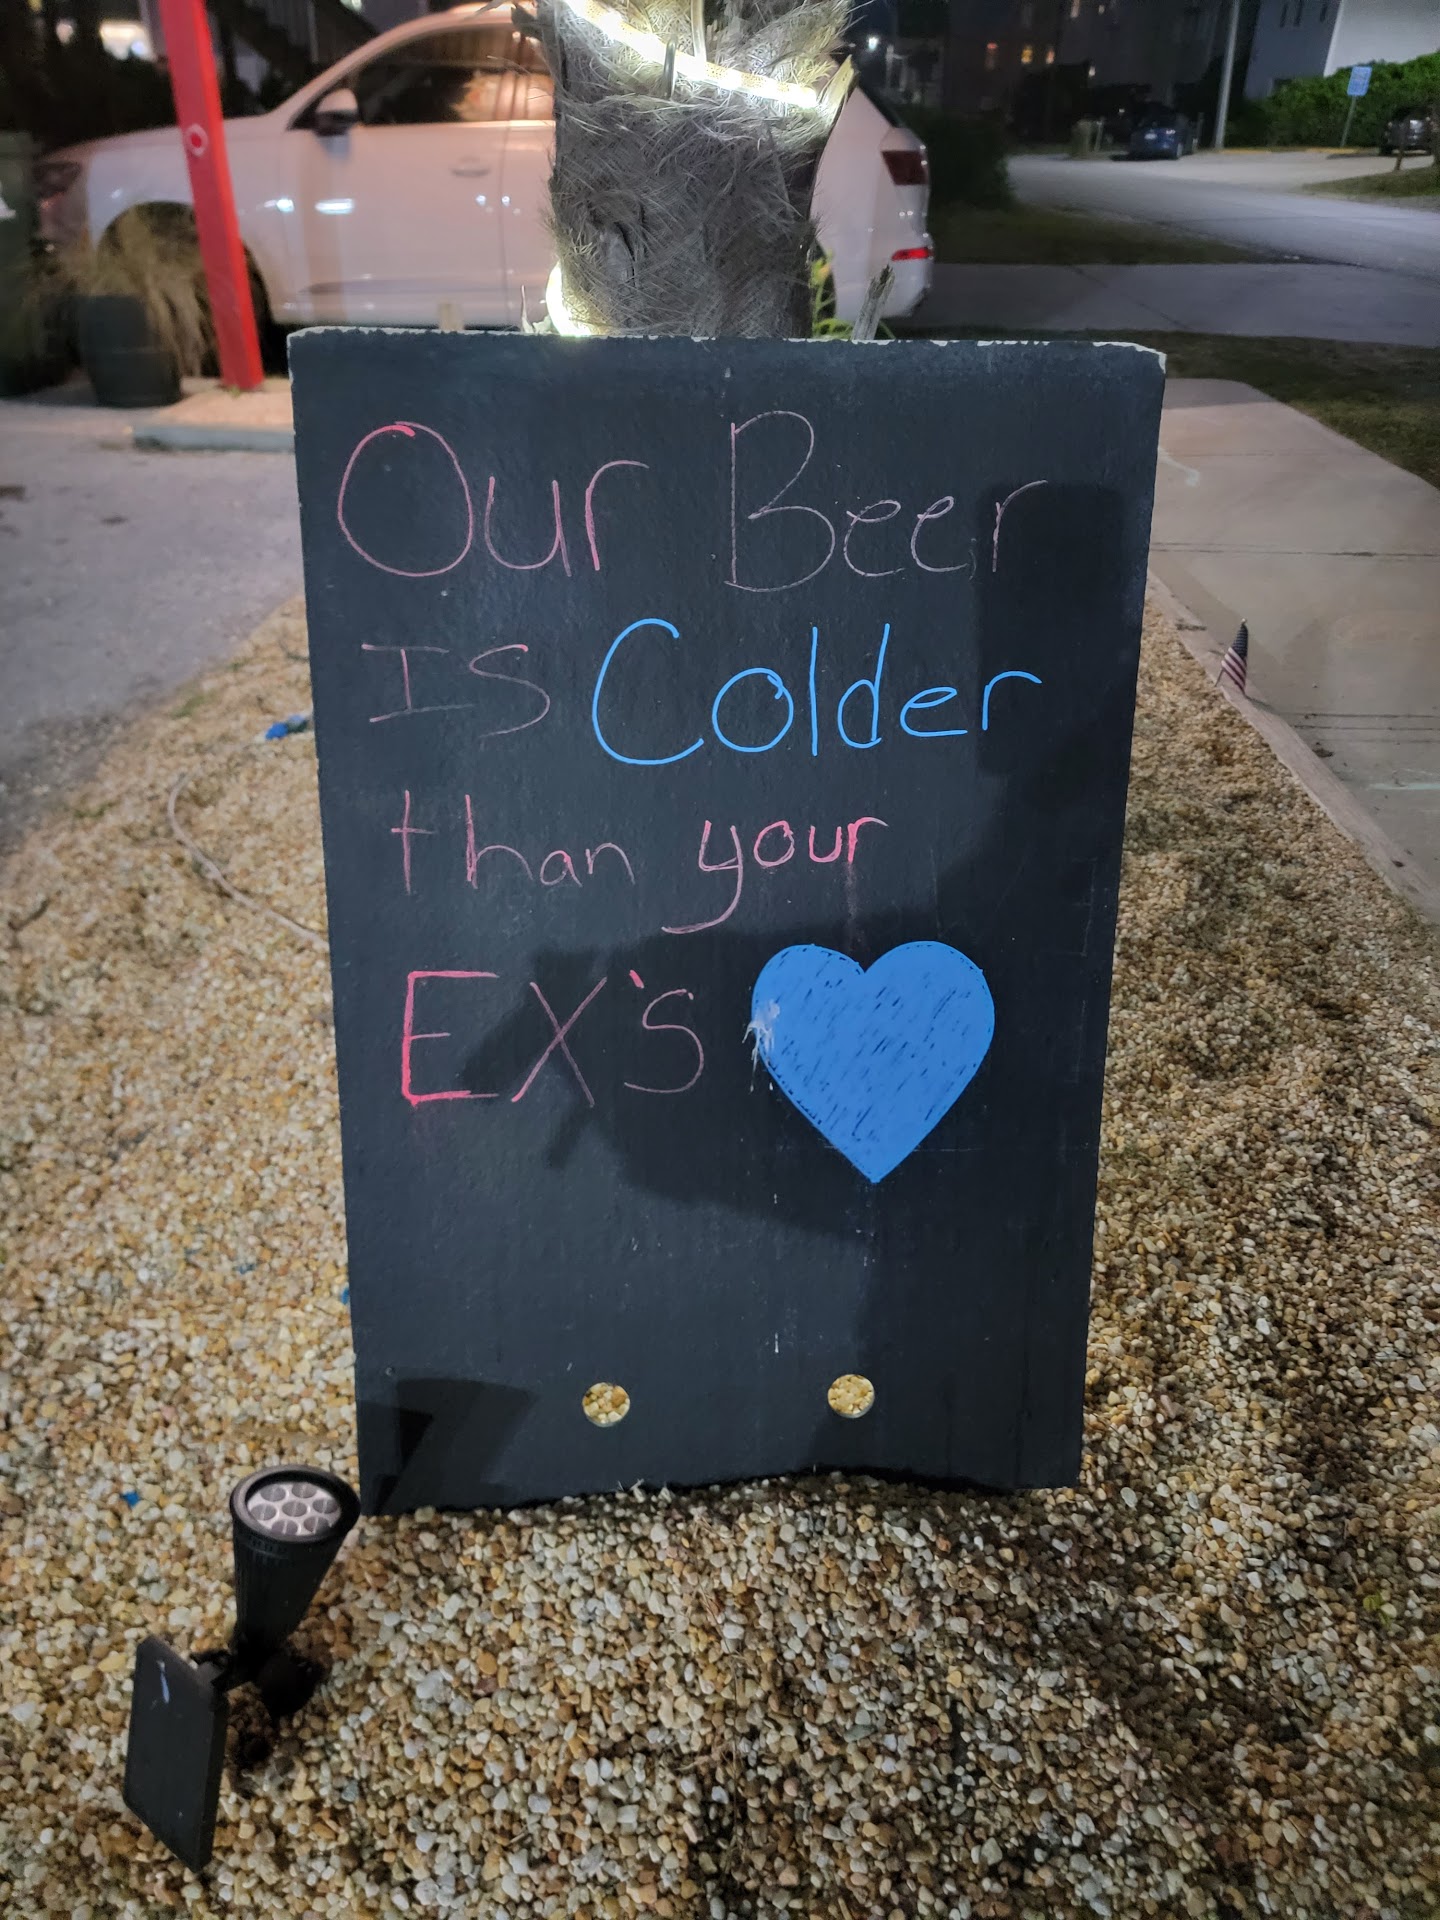 Our Beer
IS Colder
than your
EX's